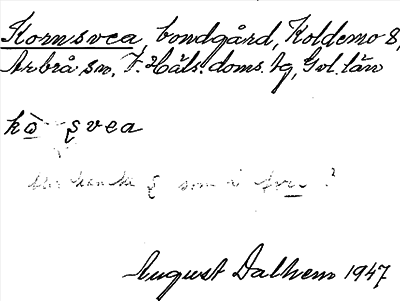 Kornsvea, bondgård, Koldemo 8,
Arbrå sn, V. Häls. doms. tg, Gvl. län
kò̱ṣvea
som i
?
August Dalhem 1947